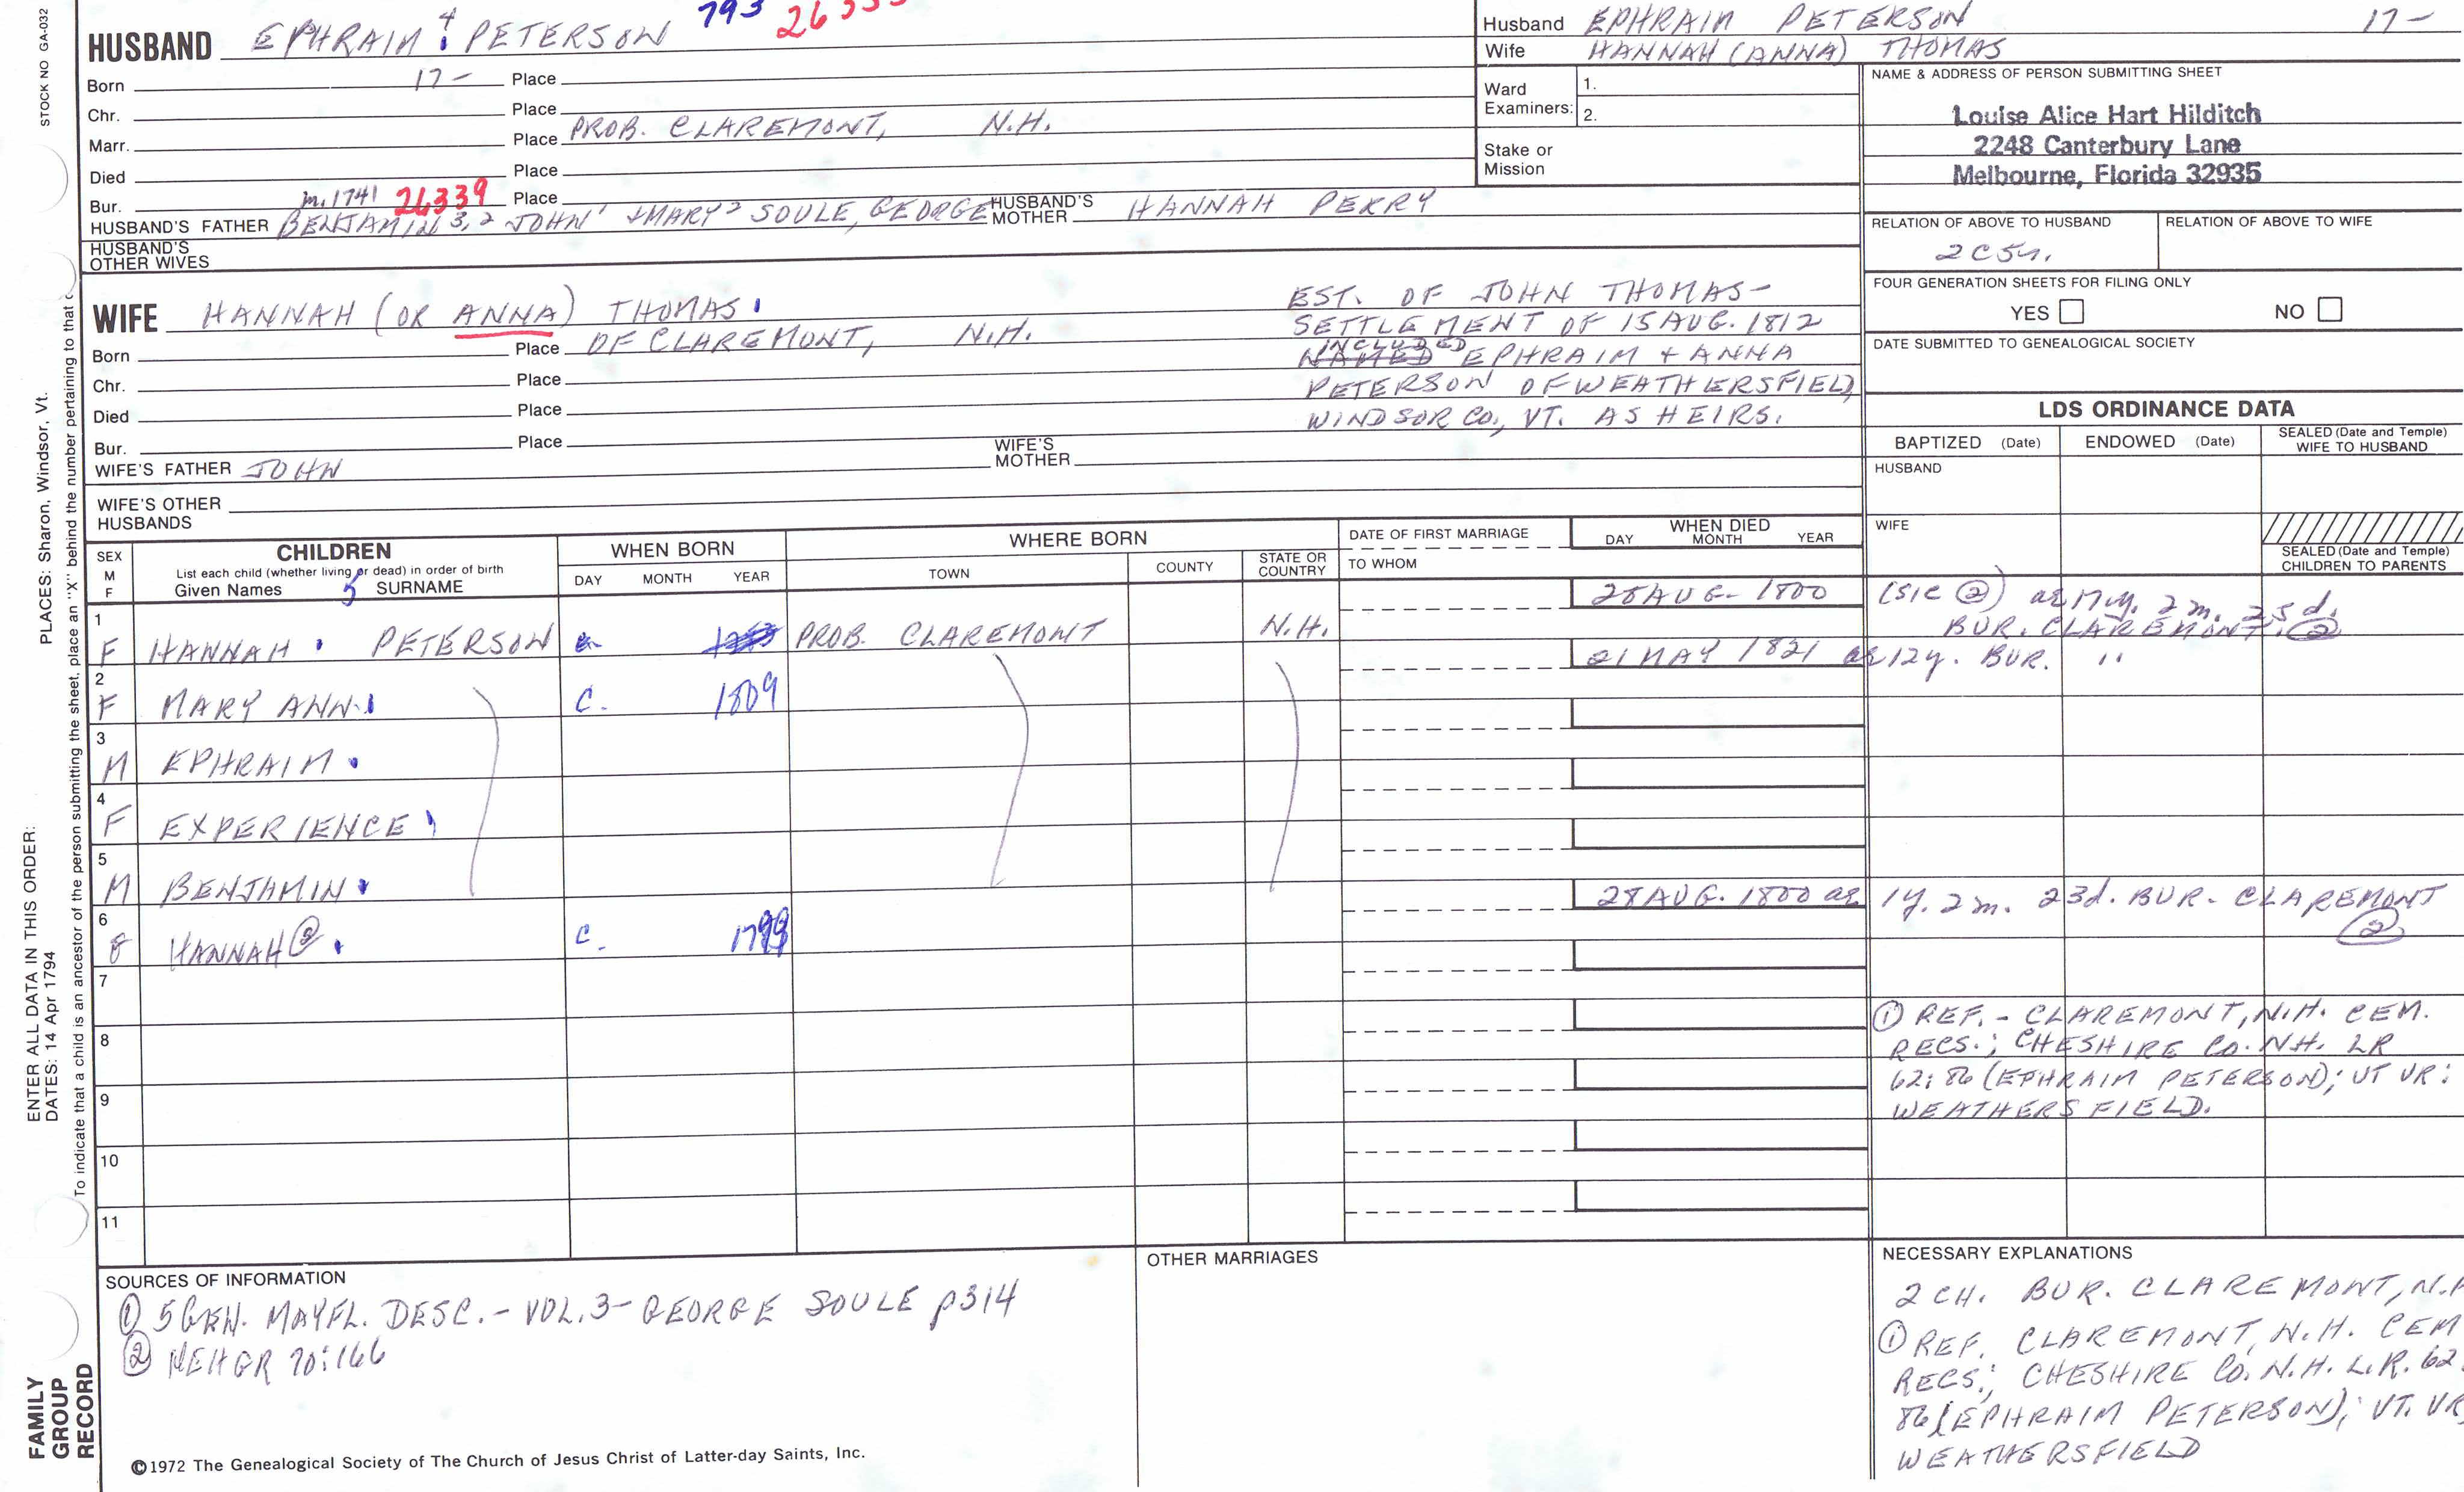 STOCK NO GA-032
793
HUSBAND EPHRAIM 4 PETERSON
Born 17- Place
Chr. Place
Marr. Place PROB. CLAREMONT, N.H.
Died Place
Bur. m.1741 26339 Place
HUSBAND'S FATHER BENJAMIN 3,2 JOHN 1 + MARY 2 SOULE, GEORGE HUSBAND'S MOTHER HANNAH PERRY
HUSBAND'S OTHER WIVES
WIFE HANNAH (OR ANNA) THOMAS
Born Place OF CLAREMONT, N.H.
Chr. Place
Died Place
Bur. Place
WIFE'S FATHER JOHN WIFE'S MOTHER
WIFE'S OTHER HUSBANDS
EST. OF JOHN THOMAS-
SETTLEMENT OF 15 AUG. 1812
NAMED INCLUDED EPHRAIM + ANNA
PETERSON OF WEATHERSFIELD,
WINDSOR CO., VT. AS HEIRS.
Husband EPHRAIM PETERSON 17-
Wife HANNAH (ANNA) THOMAS
Ward Examiners: 1.
2.
Stake or Mission
NAME & ADDRESS OF PERSON SUBMITTING SHEET
Louise Alice Hart Hilditch
2248 Canterbury Lane
Melbourne, Florida 32935
RELATION OF ABOVE TO HUSBAND RELATION OF ABOVE TO WIFE
2C5
FOUR GENERATION SHEETS FOR FILING ONLY
YES NO
DATE SUBMITTED TO GENEALOGICAL SOCIETY
LDS ORDINANCE DATA
BAPTIZED (Date) ENDOWED (Date) SEALED (Date and Temple) WIFE TO HUSBAND
HUSBAND
WIFE
SEALED (Date and Temple) CHILDREN TO PARENTS
SEX M F
CHILDREN
List each child (whether living or dead) in order of birth
Given Names 5 SURNAME
WHEN BORN
DAY MONTH YEAR
WHERE BORN
TOWN COUNTY STATE OR COUNTRY
DATE OF FIRST MARRIAGE
TO WHOM
WHEN DIED
DAY MONTH YEAR
1 F HANNAH PETERSON PROB. CLAREMONT N.H. 28 AUG- 1800 (SIC ②) ae 17y. 2 m. 25 d.
BUR. CLAREMONT. ②
2 F MARY ANN C. 1809 21 MAY 1821 ae 12y. BUR. "
3 M EPHRAIM
4 F EXPERIENCE
5 M BENJAMIN
6 F HANNAH ② C. 1799 28 AUG. 1800 ae 1y. 2 m. 23d. BUR- CLAREMONT ②
7
8
9
10
11
① REF.- CLAREMONT, N.H. CEM.
RECS.; CHESHIRE CO. N.H. LR
62:86 (EPHRAIM PETERSON); VT VR:
WEATHERSFIELD.
SOURCES OF INFORMATION
① 5 GEN. MAYFL. DESC.- VOL.3- GEORGE SOULE p314
② NEHGR 70:166
OTHER MARRIAGES
NECESSARY EXPLANATIONS
2 CH. BUR. CLAREMONT, N.H
① REF. CLAREMONT, N.H. CEM
RECS.; CHESHIRE CO. N.H. L.R. 62:
86 (EPHRAIM PETERSON); VT. VR
WEATHERSFIELD
©1972 The Genealogical Society of The Church of Jesus Christ of Latter-day Saints, Inc.
PLACES: Sharon, Windsor, Vt.
To indicate that a child is an ancestor of the person submitting the sheet, place an "X" behind the number pertaining to that c
ENTER ALL DATA IN THIS ORDER:
DATES: 14 Apr 1794
FAMILY
GROUP
RECORD